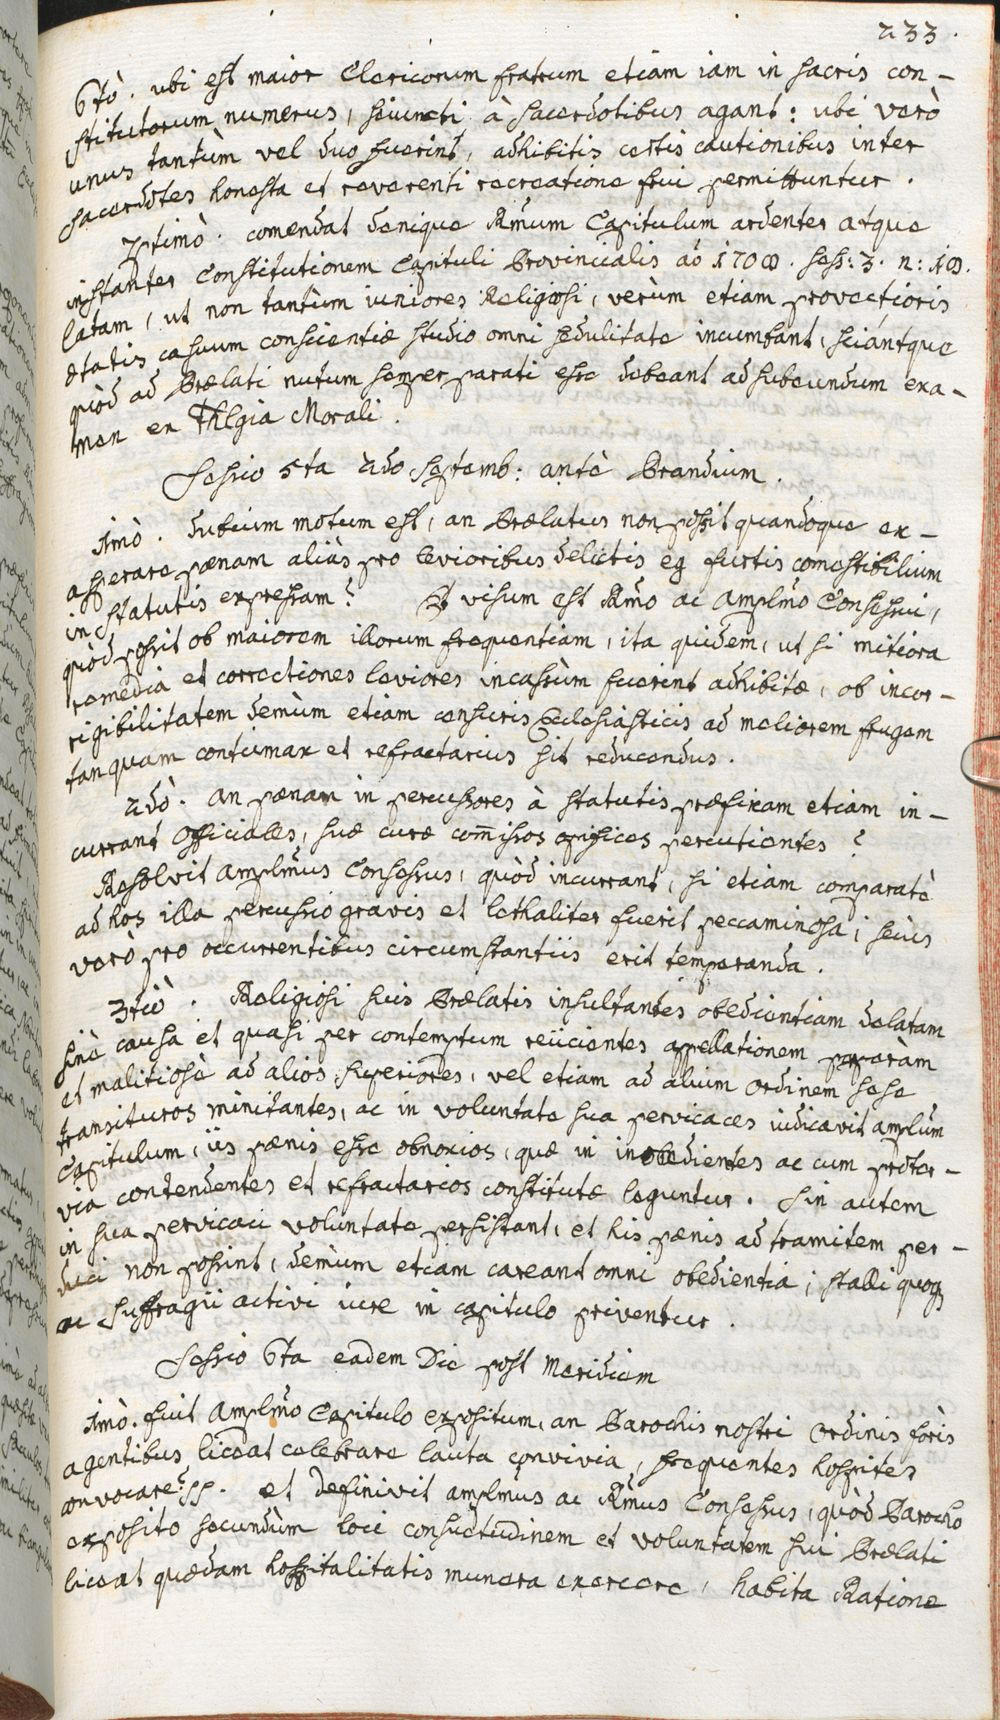 233.
6tò. ubi est maior Clericorum fratrum etiam iam in sacris con-
stitutorum numerus, seiuncti à sacerdotibus agant: ubi verò
unus tantùm vel duo fuerint, adhibitis certis cautionibus inter
sacerdotes honesta et reverenti recreatione frui permittuntur.
7ptimò. comendat denique Rm̃um Capitulum ardenter atque
instanter Constitutionem Capituli Provincialis aõ 1700. sess: 3. n: 10.
latam, ut non tantùm iuniores Religiosi, verùm etiam provectioris
ætatis casuum conscientiæ studio omni sedulitate incumbant, sciántque
quòd ad Prælati nutum semper parati esse debeant ad subeundum exa-
men ex Thlgia Morali.
Sessio 5ta 2do Septemb: antè Prandium.
1mò. dubium motum est, an Prælatus non possit quandoque ex-
asperare pænam aliàs pro levioribus delictis eg furtis comestibilium
in statutis expressam? Et visum est Rm̃o ac Amplm̃o Consessui,
quòd possit ob maiorem illorum frequentiam, ita quidem, ut si mitiora
remedia et correctiones leviores incassùm fuerint adhibitæ, ob incor-
rigibilitatem demùm etiam censuris Ecclesiasticis ad meliorem frugem
tanquam contumax et refractarius sit reducendus.
2dò. An pænam in percussores à statutis præfixam etiam in-
currant Officiales, suæ curæ com̃issos opifices percutientes?
Resolvit Amplm̃us Consessus, quòd incurrant, si etiam comparatè
ad hos illa percussio gravis et lethaliter fuerit peccaminosa; seùs
verò pro occurrentibus circumstantiis erit temperanda.
3tiò. Religiosi suis Prælatis insultantes obedientiam delatam
sinè causa et quasi per contemptum reiicientes appellationem
et malitiosè ad alios Superiores, vel etiam ad alium Ordinem sese
transituros minitantes, ac in voluntate sua pervicaces iudicavit amplum
Capitulum, iis pænis esse obnoxios, quæ in inobedientes ac cum proter-
via contendentes et refractarios constitutæ leguntur. Sin autem
in sua pervicaci voluntate persistant, et his pænis ad tramitem per-
duci non possint, demùm etiam careant omni obedientia; stalli quoq3
ac Suffragii activi iure in capitulo priventur.
Sessio 6ta eadem Die post Meridiem
1mò. fuit Amplm̃o Capitulo expositum, an Parochis nostri Ordinis foris
agentibus liceat celebrare lauta convivia, frequentes hospites
convocare? pp. et definivit amplm̃us ac Rm̃us Consessus, quòd Parocho
exposito secundùm loci consuetudinem et voluntatem sui Prælati
liceat quædam hospitalitatis munera exercere, habita Ratione